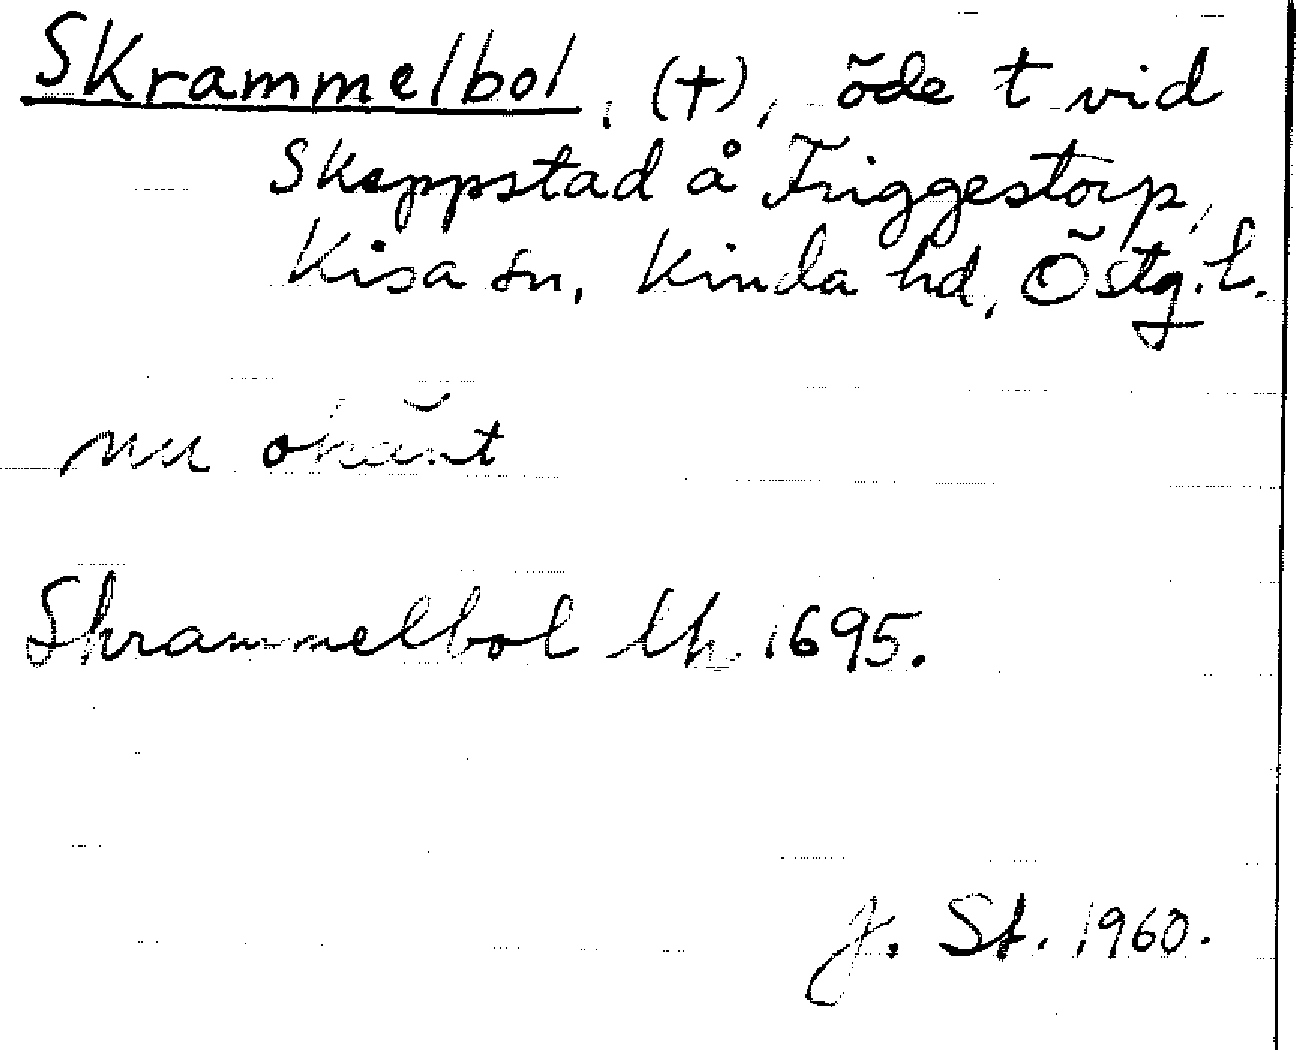 Skrammelbol, (+), öde t vid
Skeppstad å Triggestorp,
Kisa sn, Kinda hd, Östg. l.
nu okänt
Skrammelbol lh 1695.
J. St. 1960.